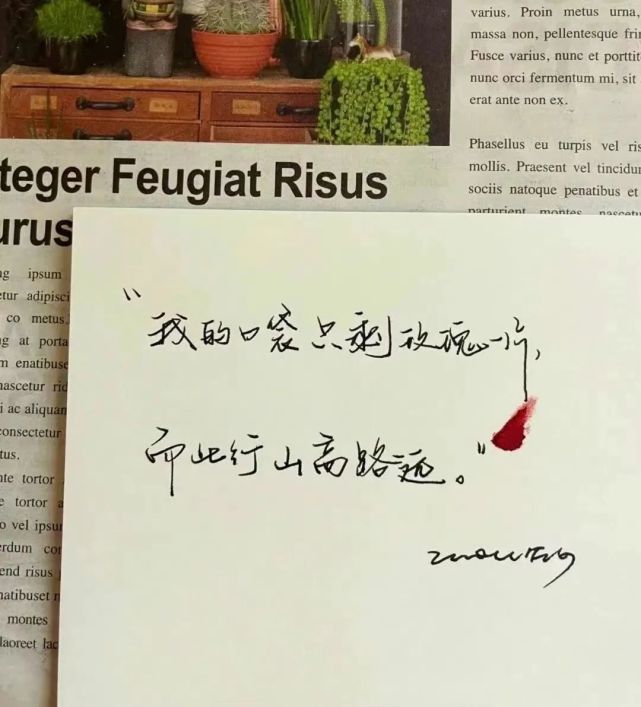 varius. Proin metus urna,
massa non, pellentesque frin
Fusce varius, nunc et porttit
nunc orci fermentum mi, sit
erat ante non ex.
Phasellus eu turpis vel ris
mollis. Praesent vel tincidun
sociis natoque penatibus et
parturient montes, nascetu
teger Feugiat Risus
urus
ng ipsum
etur adipisci
co metus.
ng at porta
m enatibuse
nascetur rid
i ac aliquam
consectetur
tus.
nte tortor
e tortor a
o vel ipsu
erdum con
end risus
natibuset n
montes
laoreet lac
“我的口袋只剩玫瑰一片,
而此行山高路远。”